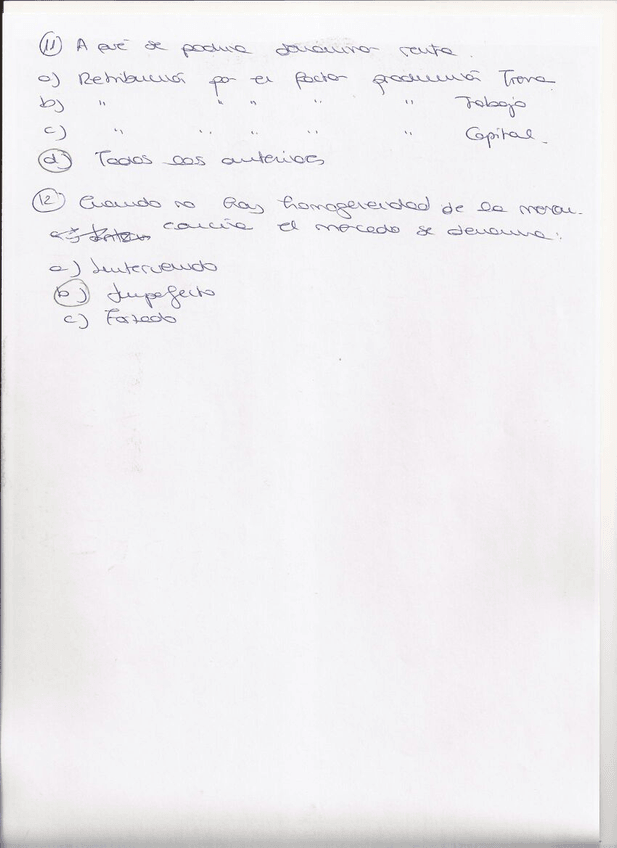 11 A qué se podria denominar renta.
a) Retribución por el factor producción Tierra
b) " " " " " Trabajo
c) " " " " " Capital.
d) Todos los anteriores
12 Cuando no hay homogeneidad de la mercan-
cancia el mercado se denomina:
a) Intervenido
b) Imperfecto
c) Forzado